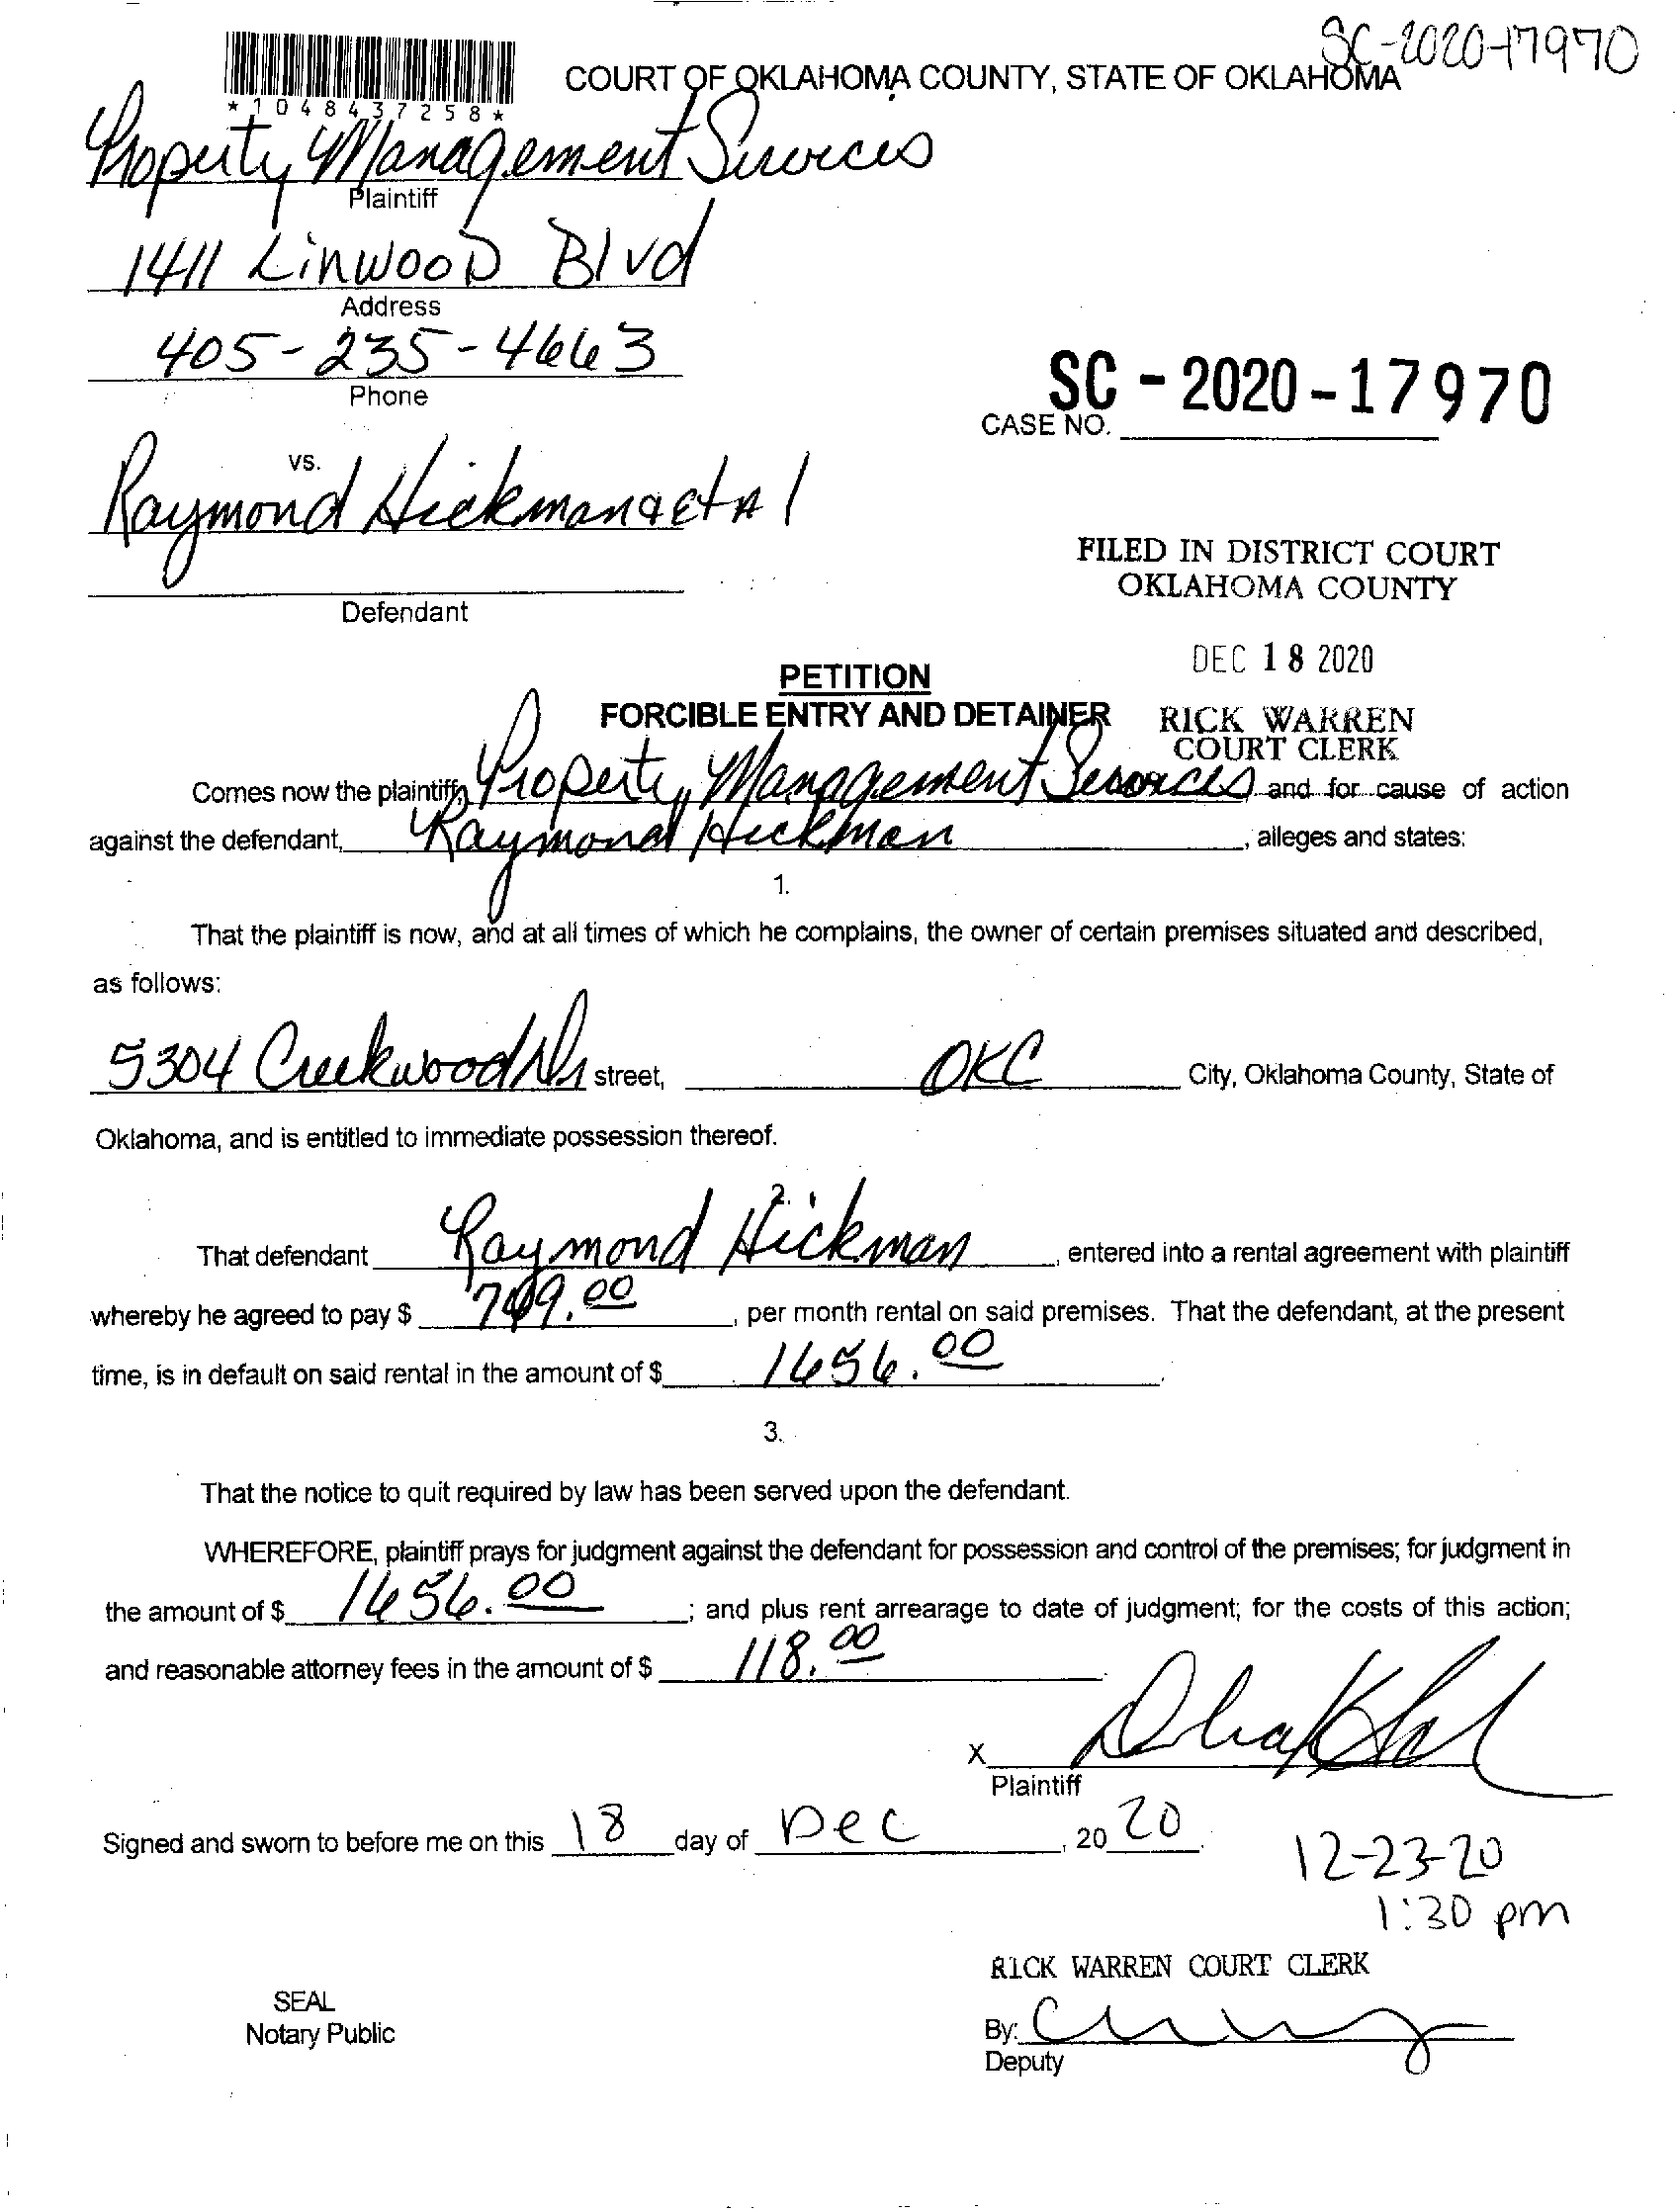 SC-2020-17970
COURT OF OKLAHOMA COUNTY, STATE OF OKLAHOMA
*1048437258*
Property Management Services
Plaintiff
1411 Linwood Blvd
Address
405-235-4663
Phone
SC-2020-17970
CASE NO.
vs.
Raymond Hickman et Al
FILED IN DISTRICT COURT
OKLAHOMA COUNTY
Defendant
DEC 18 2020
PETITION
FORCIBLE ENTRY AND DETAINER
RICK WARREN
COURT CLERK
Comes now the plaintiff, Property Management Services and for cause of action
against the defendant, Raymond Hickman, alleges and states:
1.
That the plaintiff is now, and at all times of which he complains, the owner of certain premises situated and described,
as follows:
5304 Creekwood Dr street, OKC City, Oklahoma County, State of
Oklahoma, and is entitled to immediate possession thereof.
2.
That defendant Raymond Hickman, entered into a rental agreement with plaintiff
whereby he agreed to pay $ , per month rental on said premises. That the defendant, at the present
time, is in default on said rental in the amount of $ 1656.00.
3.
That the notice to quit required by law has been served upon the defendant.
WHEREFORE, plaintiff prays for judgment against the defendant for possession and control of the premises; for judgment in
the amount of $ 1656.00; and plus rent arrearage to date of judgment; for the costs of this action;
and reasonable attorney fees in the amount of $ 118.00
X
Plaintiff
Signed and sworn to before me on this 18 day of Dec, 2020.
12-23-20
1:30 pm
RICK WARREN COURT CLERK
SEAL
Notary Public
By:
Deputy